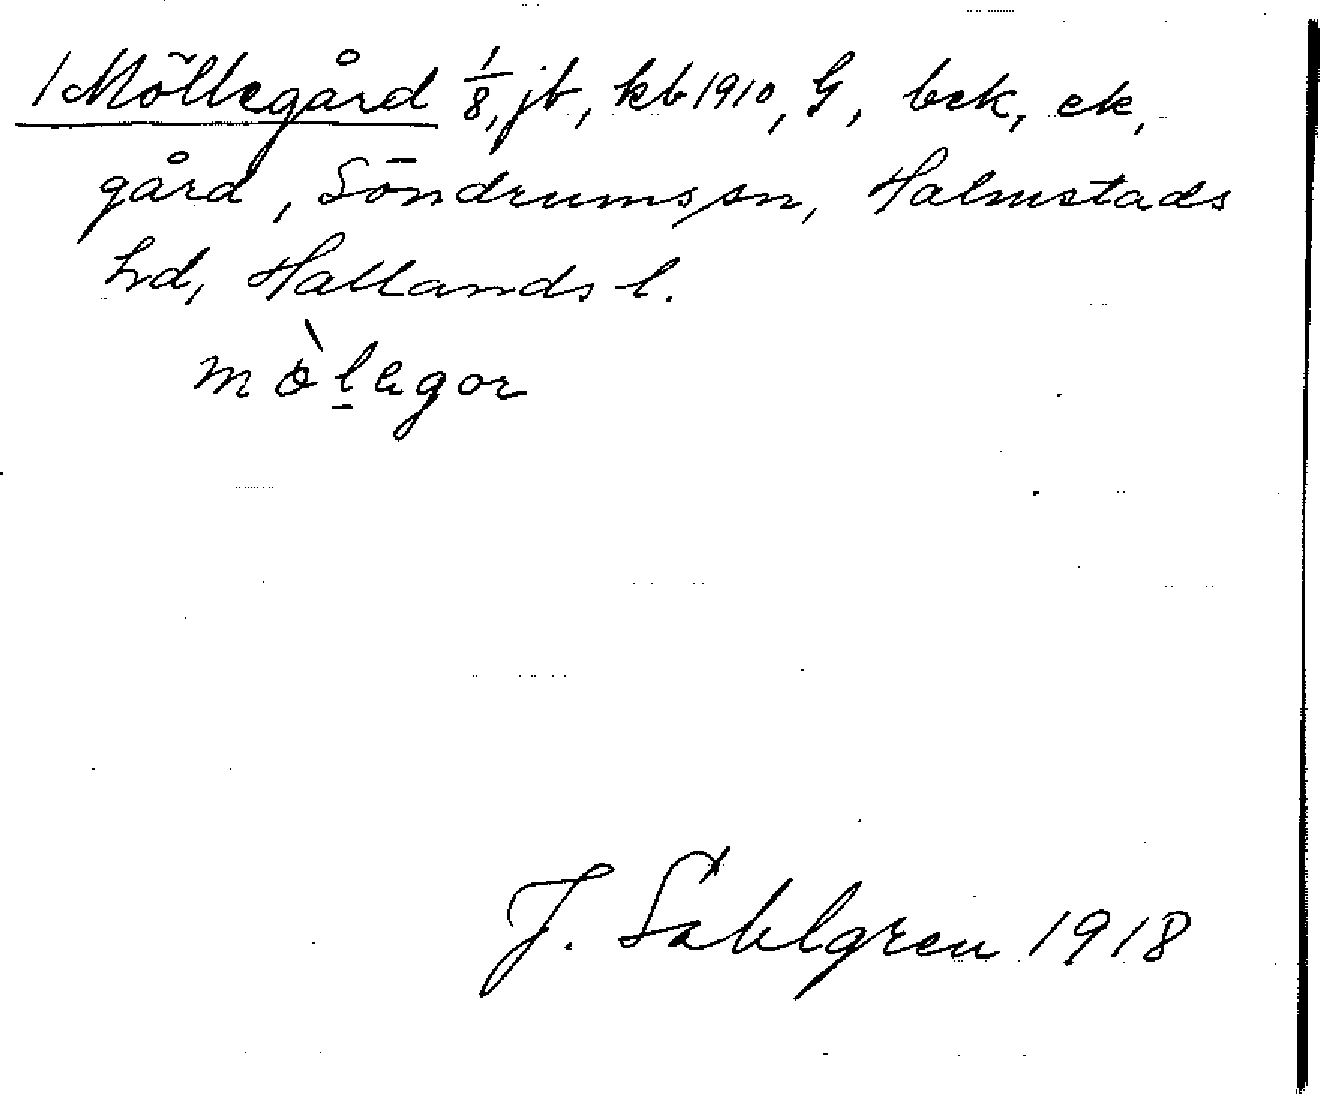 1 Möllegård 1/8, jb, kb 1910, G, bek, ek,
gård, Söndrums sn, Halmstads
hd, Hallands l.
mòḻegor
J. Sahlgren 1918